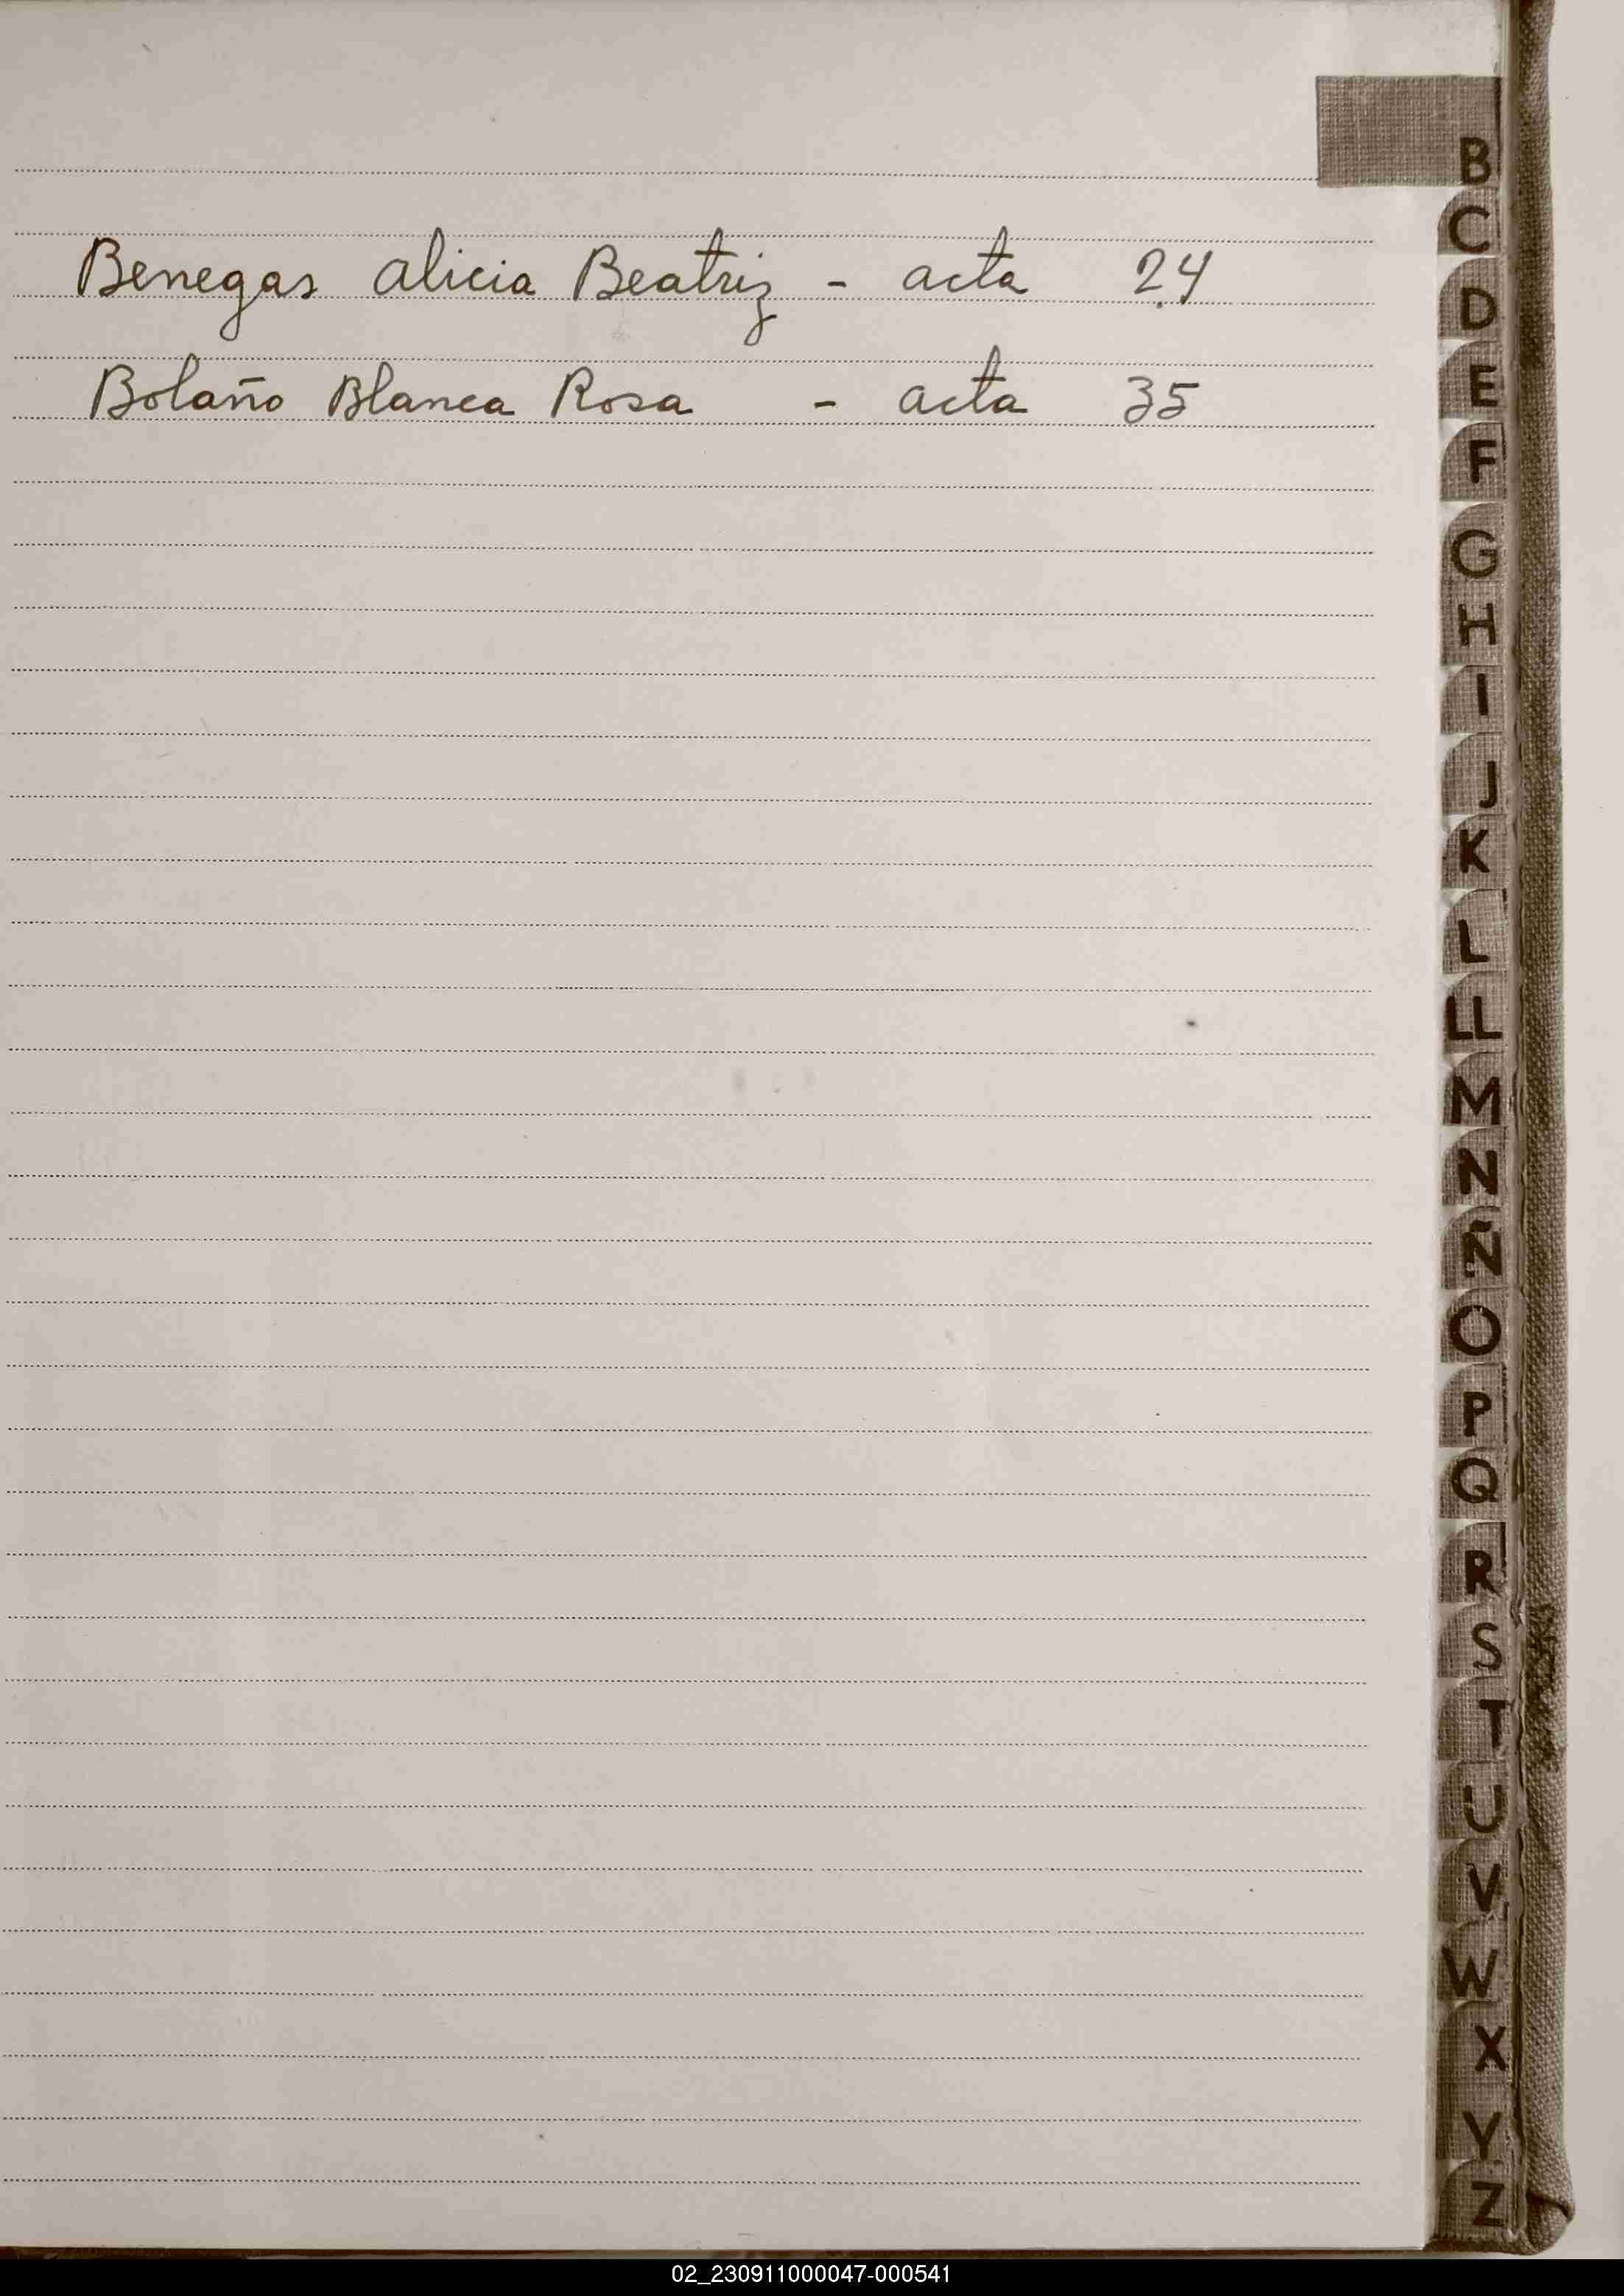 B
C
Benegas Alicia Beatriz - acta 24
D
E
Bolaño Blanca Rosa - acta 35
F
G
H
I
J
K
L
LL
M
N
Ñ
O
P
Q
R
S
T
U
V
W
X
Y
Z
02_230911000047-000541